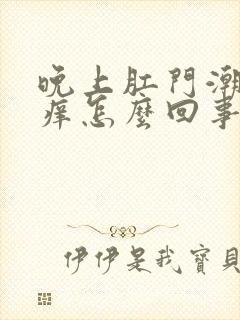 晚上肛門潮
痒怎麼回事
伊伊是我寶貝